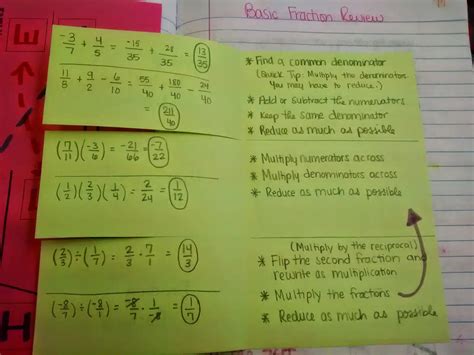 Basic Fraction Review
-3/7 + 4/5 = -15/35 + 28/35 = 13/35
11/8 + 9/2 - 6/10 = 55/40 + 180/40 - 24/40
= 211/40
* Find a common denominator
(Quick Tip: Multiply the denominators.
You may have to reduce.)
* Add or subtract the numerators
* Keep the same denominator
* Reduce as much as possible
(7/11)(-3/6) = -21/66 = -7/22
(1/2)(2/3)(1/4) = 2/24 = 1/12
* Multiply numerators across
* Multiply denominators across
* Reduce as much as possible
(2/3) ÷ (1/7) = 2/3 · 7/1 = 14/3
(-8/7) ÷ (-8/1) = -8/7 · 1/-8 = 1/7
(Multiply by the reciprocal)
* Flip the second fraction and
rewrite as multiplication
* Multiply the fractions
* Reduce as much as possible
E
H